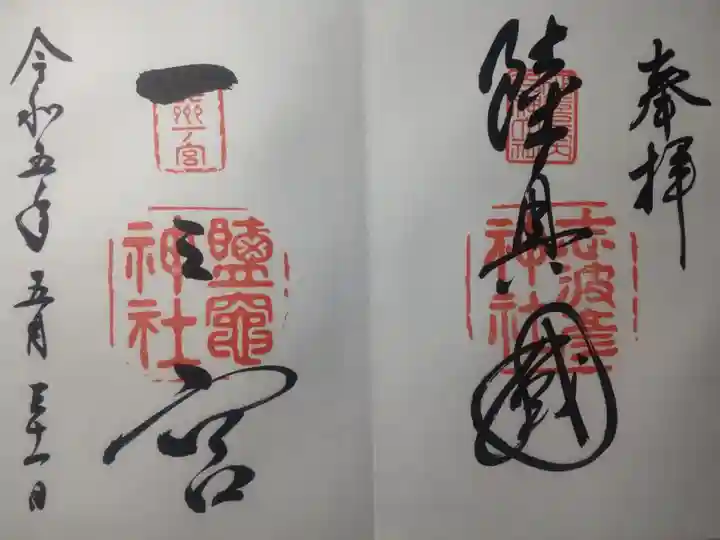 奉拝
陸奥國
志波彦
神社
一之宮
奥州一ノ宮
鹽竈
神社
令和五年五月三十一日